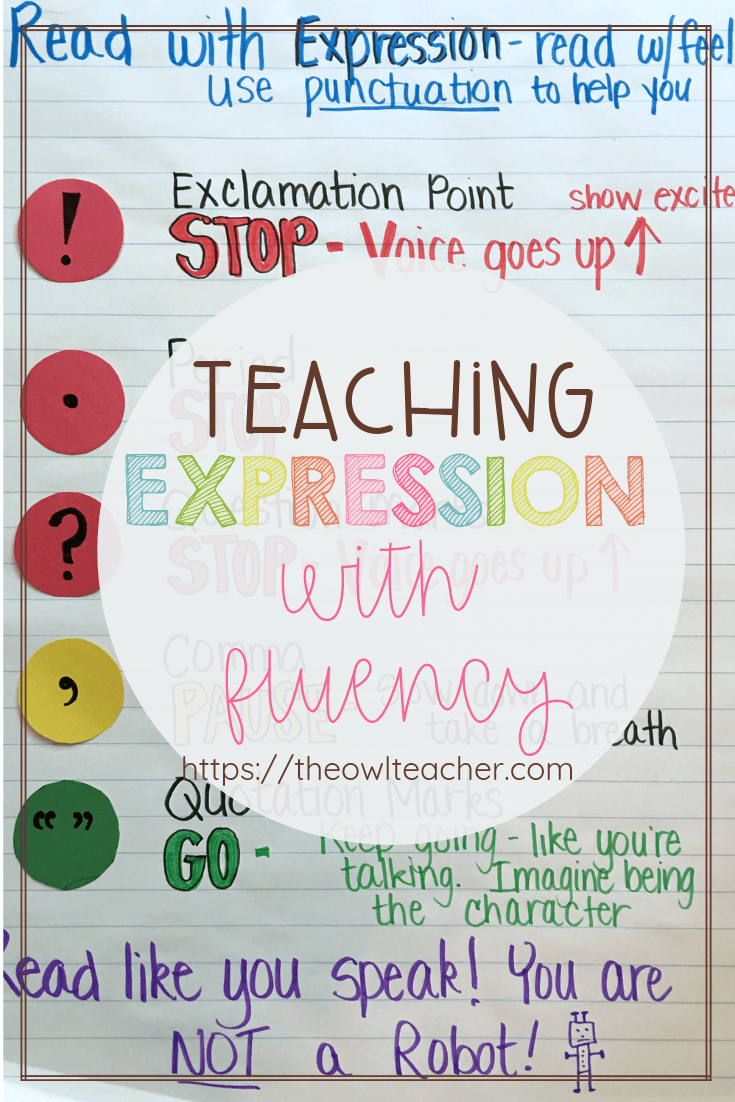 Read with Expression - read w/feel
use punctuation to help you
! Exclamation Point show excite
STOP - Voice goes up ↑
Period
.
STOP
TEACHING
EXPRESSION
?
STOP - Voice goes up ↑
with
Comma
,
PAUSE
down and
take a breath
fluency
https://theowlteacher.com
Quotation Marks
“ ”
GO - Keep going - like you're
talking. Imagine being
the character
Read like you speak! You are
NOT a Robot!